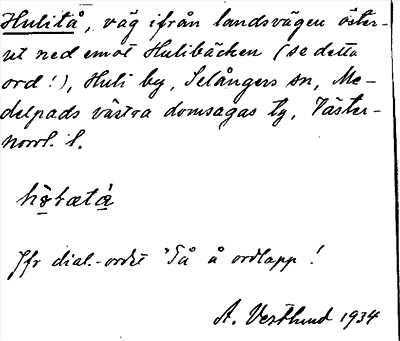 Hulitå, väg ifrån landsvägen öster-
ut ned emot Hulibäcken (se detta
ord!), Huli by, Selångers sn, Me-
delpads västra domsagas tg, Väster-
norrl. l.
Jfr dial.-ordet Tå å ordlapp!
A. Vestlund 1934